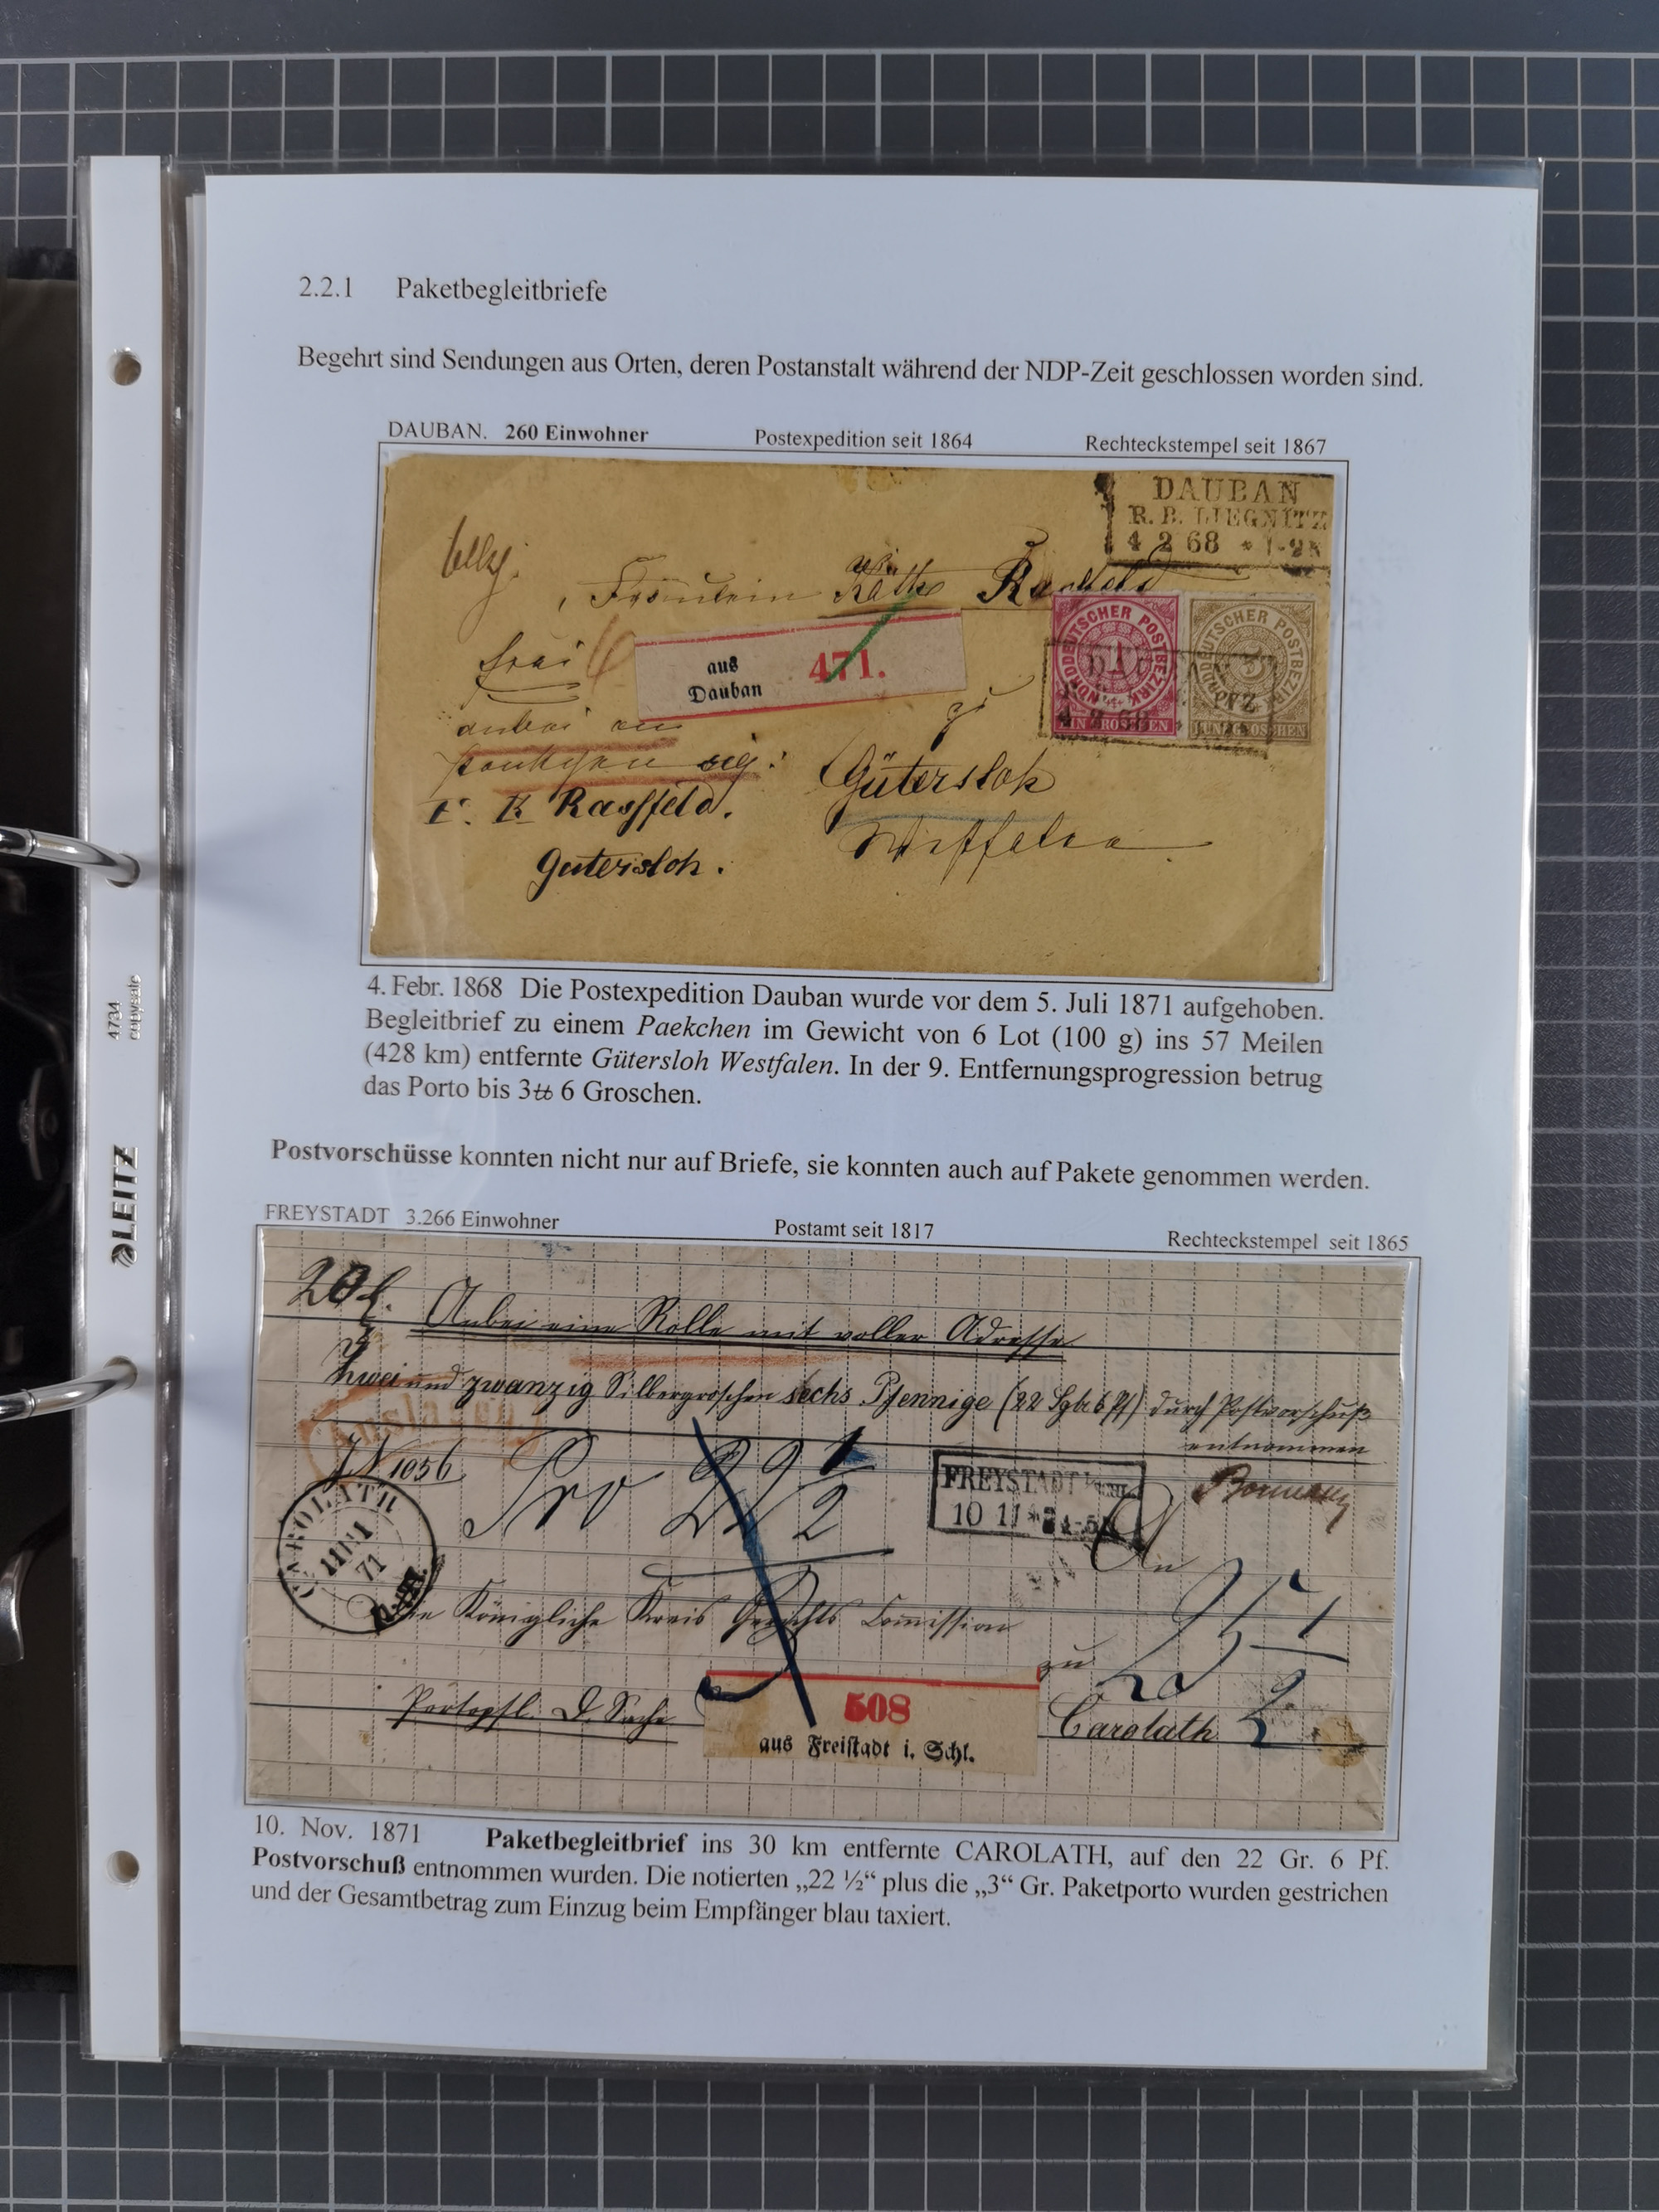 2.2.1 Paketbegleitbriefe
Begehrt sind Sendungen aus Orten, deren Postanstalt während der NDP-Zeit geschlossen worden sind.
DAUBAN. 260 Einwohner Postexpedition seit 1864 Rechteckstempel seit 1867
DAUBAN
R. B. LIEGNITZ
4 2 68
Fräulein Käthe
frei
aus
Dauban
471.
NORDDEUTSCHER POSTBEZIRK
1
EIN GROSCHEN
NORDDEUTSCHER POSTBEZIRK
5
FÜNF GROSCHEN
anbei ein
sig:
Rassfeld.
Gütersloh.
Gütersloh
4. Febr. 1868 Die Postexpedition Dauban wurde vor dem 5. Juli 1871 aufgehoben.
Begleitbrief zu einem Paekchen im Gewicht von 6 Lot (100 g) ins 57 Meilen
(428 km) entfernte Gütersloh Westfalen. In der 9. Entfernungsprogression betrug
das Porto bis 3 ℔ 6 Groschen.
Postvorschüsse konnten nicht nur auf Briefe, sie konnten auch auf Pakete genommen werden.
FREYSTADT 3.266 Einwohner Postamt seit 1817 Rechteckstempel seit 1865
Anbei eine Rolle mit voller Adresse
Zwei und zwanzig Silbergroschen sechs Pfennige (22 Sgr 6 Pf) durch Postvorschuß
entnommen
Auslagen
1056
CAROLATH
11 11
71
FREYSTADT
10 11
An
die Königliche Kreis Gerichts Commission
zu
Carolath
508
aus Freistadt i. Schl.
10. Nov. 1871 Paketbegleitbrief ins 30 km entfernte CAROLATH, auf den 22 Gr. 6 Pf.
Postvorschuß entnommen wurden. Die notierten „22 ½“ plus die „3“ Gr. Paketporto wurden gestrichen
und der Gesamtbetrag zum Einzug beim Empfänger blau taxiert.
4734
copysafe
LEITZ